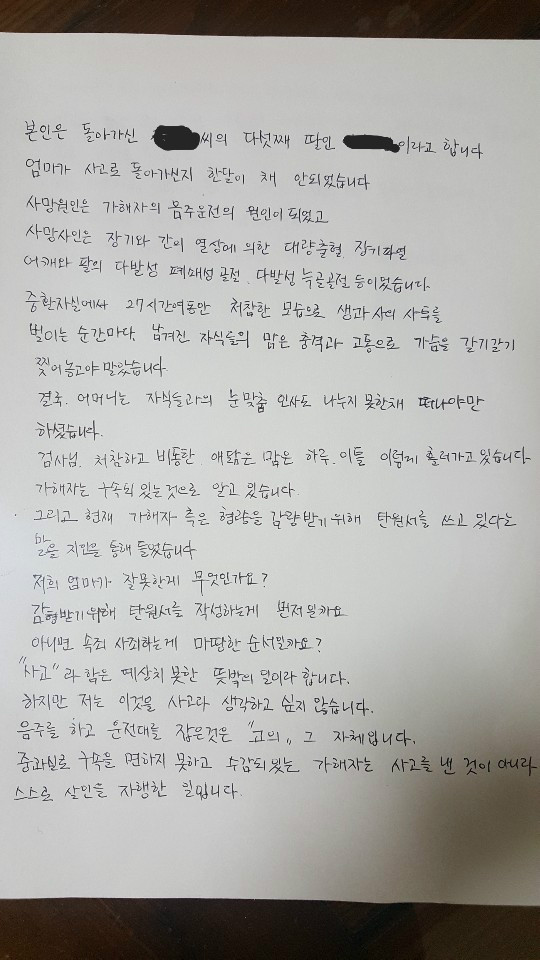 본인은 돌아가신 씨의 다섯째 딸인 이라고 합니다
엄마가 사고로 돌아가신지 한달이 채 안되었습니다
사망원인은 가해자의 음주운전의 원인이 되었고
사망사인은 장기와 간이 열상에 의한 대량출혈 장기파열
어깨와 팔의 다발성 폐쇄성 골절, 다발성 늑골골절 등이었습니다.
중환자실에서 27시간여동안 처참한 모습으로 생과 사의 사투를
벌이는 순간마다, 남겨진 자식들의 맒은 충격과 고통으로 가슴을 갈기갈기
찢어놓고야 말았습니다.
결국, 어머니는 자식들과의 눈맞춤 인사도 나누지 못한채 떠나야만
하셨습니다.
검사님, 처참하고 비통한, 애닮은 맒은 하루, 이틀 이렇게 흘러가고 있습니다
가해자는 구속되 있는것으로 알고 있습니다
그리고 현재 가해자 측은 형량을 감량받기 위해 탄원서를 쓰고 있다는
말을 지인을 통해 들었습니다
저희 엄마가 잘못한게 무엇인가요?
감형받기위해 탄원서를 작성하는게 먼저일까요
아니면 속죄 사죄하는게 마땅한 순서일까요?
"사고"라 함은 예상치 못한 뜻밖의 일이라 합니다.
하지만 저는 이것을 사고라 생각하고 싶지 않습니다.
음주를 하고 운전대를 잡은것은 "고의" 그 자체입니다.
중과실로 구속을 면하지 못하고 수감되있는 가해자는 사고를 낸 것이 아니라
스스로 살인을 자행한 일입니다.